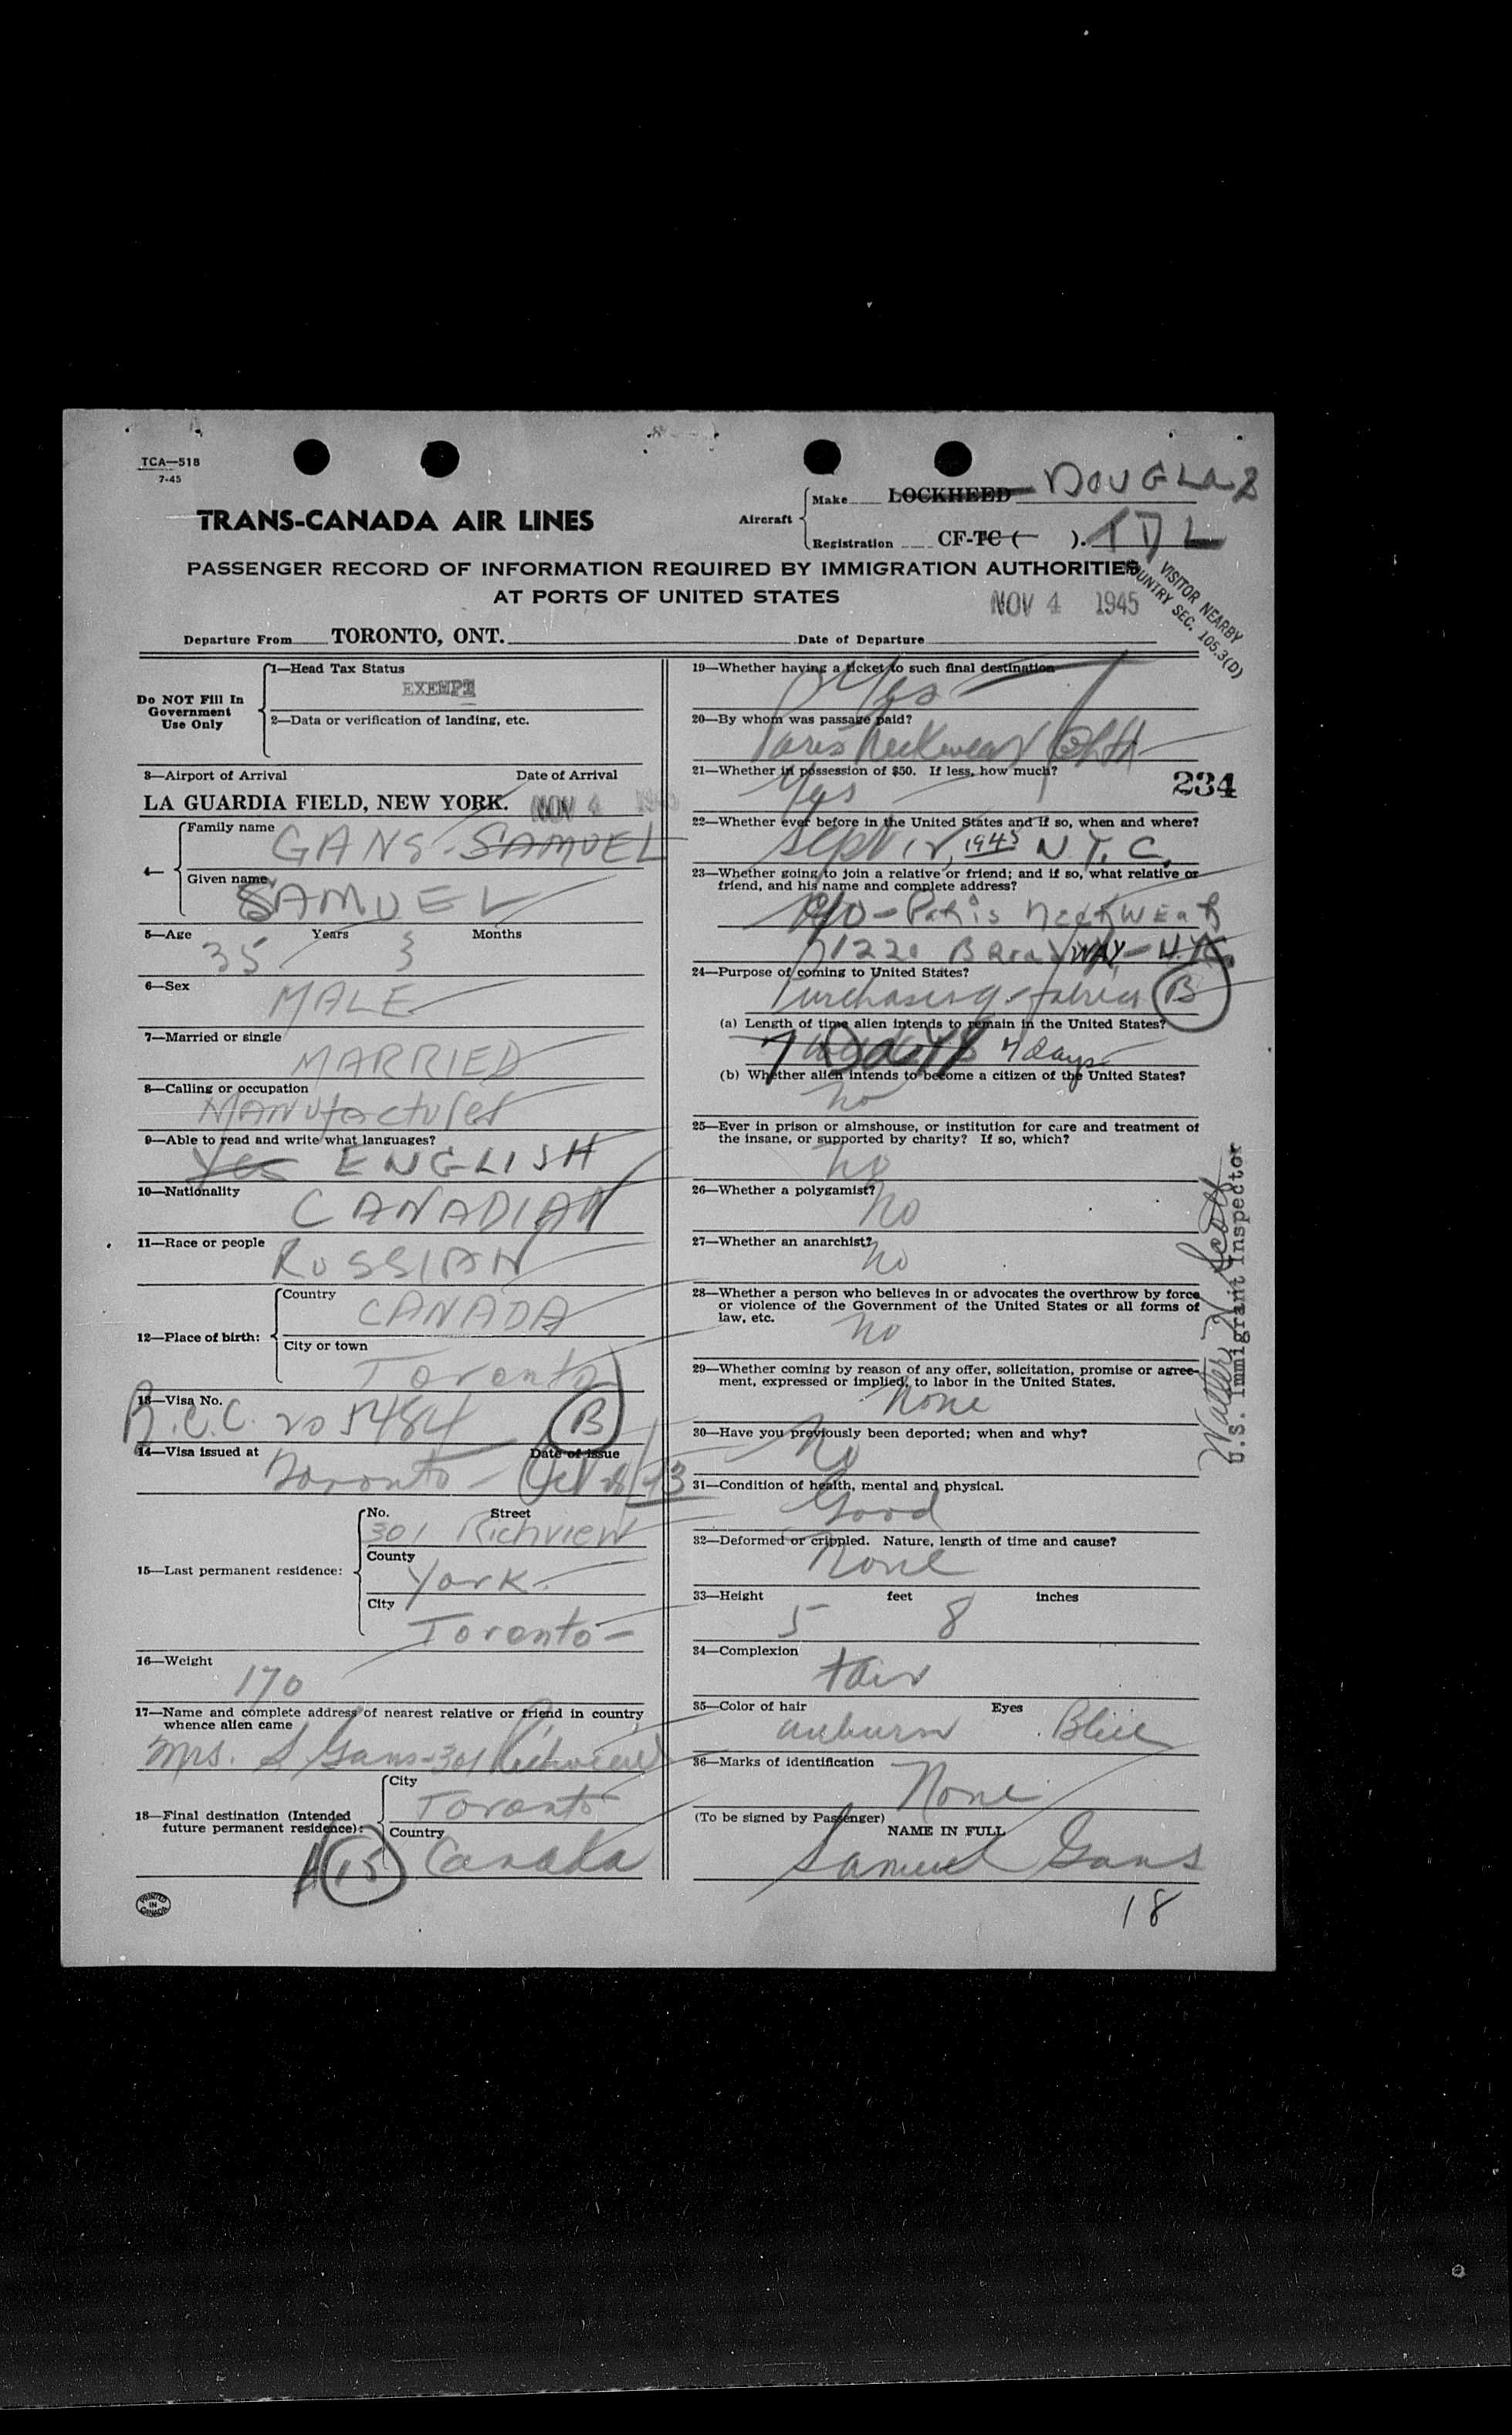 TCA—518
7-45
TRANS-CANADA AIR LINES
Aircraft
Make LOCKHEED DOUGLAS
Registration CF-TC ( ). TDL
PASSENGER RECORD OF INFORMATION REQUIRED BY IMMIGRATION AUTHORITIES
AT PORTS OF UNITED STATES
NOV 4 1945
VISITOR NEARBY
COUNTRY SEC. 105.3(D)
Departure From TORONTO, ONT. Date of Departure
Do NOT Fill In
Government
Use Only
1—Head Tax Status
EXEMPT
2—Data or verification of landing, etc.
3—Airport of Arrival Date of Arrival
LA GUARDIA FIELD, NEW YORK. NOV 4 1945
4—
Family name GANS - SAMUEL
Given name SAMUEL
5—Age Years Months
35 3
6—Sex
MALE
7—Married or single
MARRIED
8—Calling or occupation
MANUfacturer
9—Able to read and write what languages?
Yes ENGLISH
10—Nationality
CANADIAN
11—Race or people
RUSSIAN
12—Place of birth:
Country
CANADA
City or town
Toronto
13—Visa No.
R.C.C. 205484 B
14—Visa issued at Date of issue
Toronto - Oct
15—Last permanent residence:
No. Street
301 Richview
County
York
City
Toronto
16—Weight
170
17—Name and complete address of nearest relative or friend in country
whence alien came
Mrs. S Gans - 301 Richview
18—Final destination (Intended
future permanent residence):
City
Toronto
Country
15 Canada
PRINTED
IN
CANADA
19—Whether having a ticket to such final destination
Yes
20—By whom was passage paid?
Paris Neckwear
21—Whether in possession of $50. If less, how much?
Yes
234
22—Whether ever before in the United States and if so, when and where?
Sept 1945 N.Y.C.
23—Whether going to join a relative or friend; and if so, what relative or
friend, and his name and complete address?
c/o - Paris Neckwear
1220 Broadway - N.Y.
24—Purpose of coming to United States?
Purchasing - fabrics B
(a) Length of time alien intends to remain in the United States?
7 Days 7 days
(b) Whether alien intends to become a citizen of the United States?
no
25—Ever in prison or almshouse, or institution for care and treatment of
the insane, or supported by charity? If so, which?
no
26—Whether a polygamist?
no
27—Whether an anarchist?
no
28—Whether a person who believes in or advocates the overthrow by force
or violence of the Government of the United States or all forms of
law, etc.
no
29—Whether coming by reason of any offer, solicitation, promise or agree-
ment, expressed or implied, to labor in the United States.
none
30—Have you previously been deported; when and why?
No
31—Condition of health, mental and physical.
Good
32—Deformed or crippled. Nature, length of time and cause?
None
33—Height feet inches
5 8
34—Complexion
fair
35—Color of hair Eyes
auburn Blue
36—Marks of identification
None
(To be signed by Passenger)
NAME IN FULL
Samuel Gans
18
Walter N Scott
U.S. Immigrant Inspector